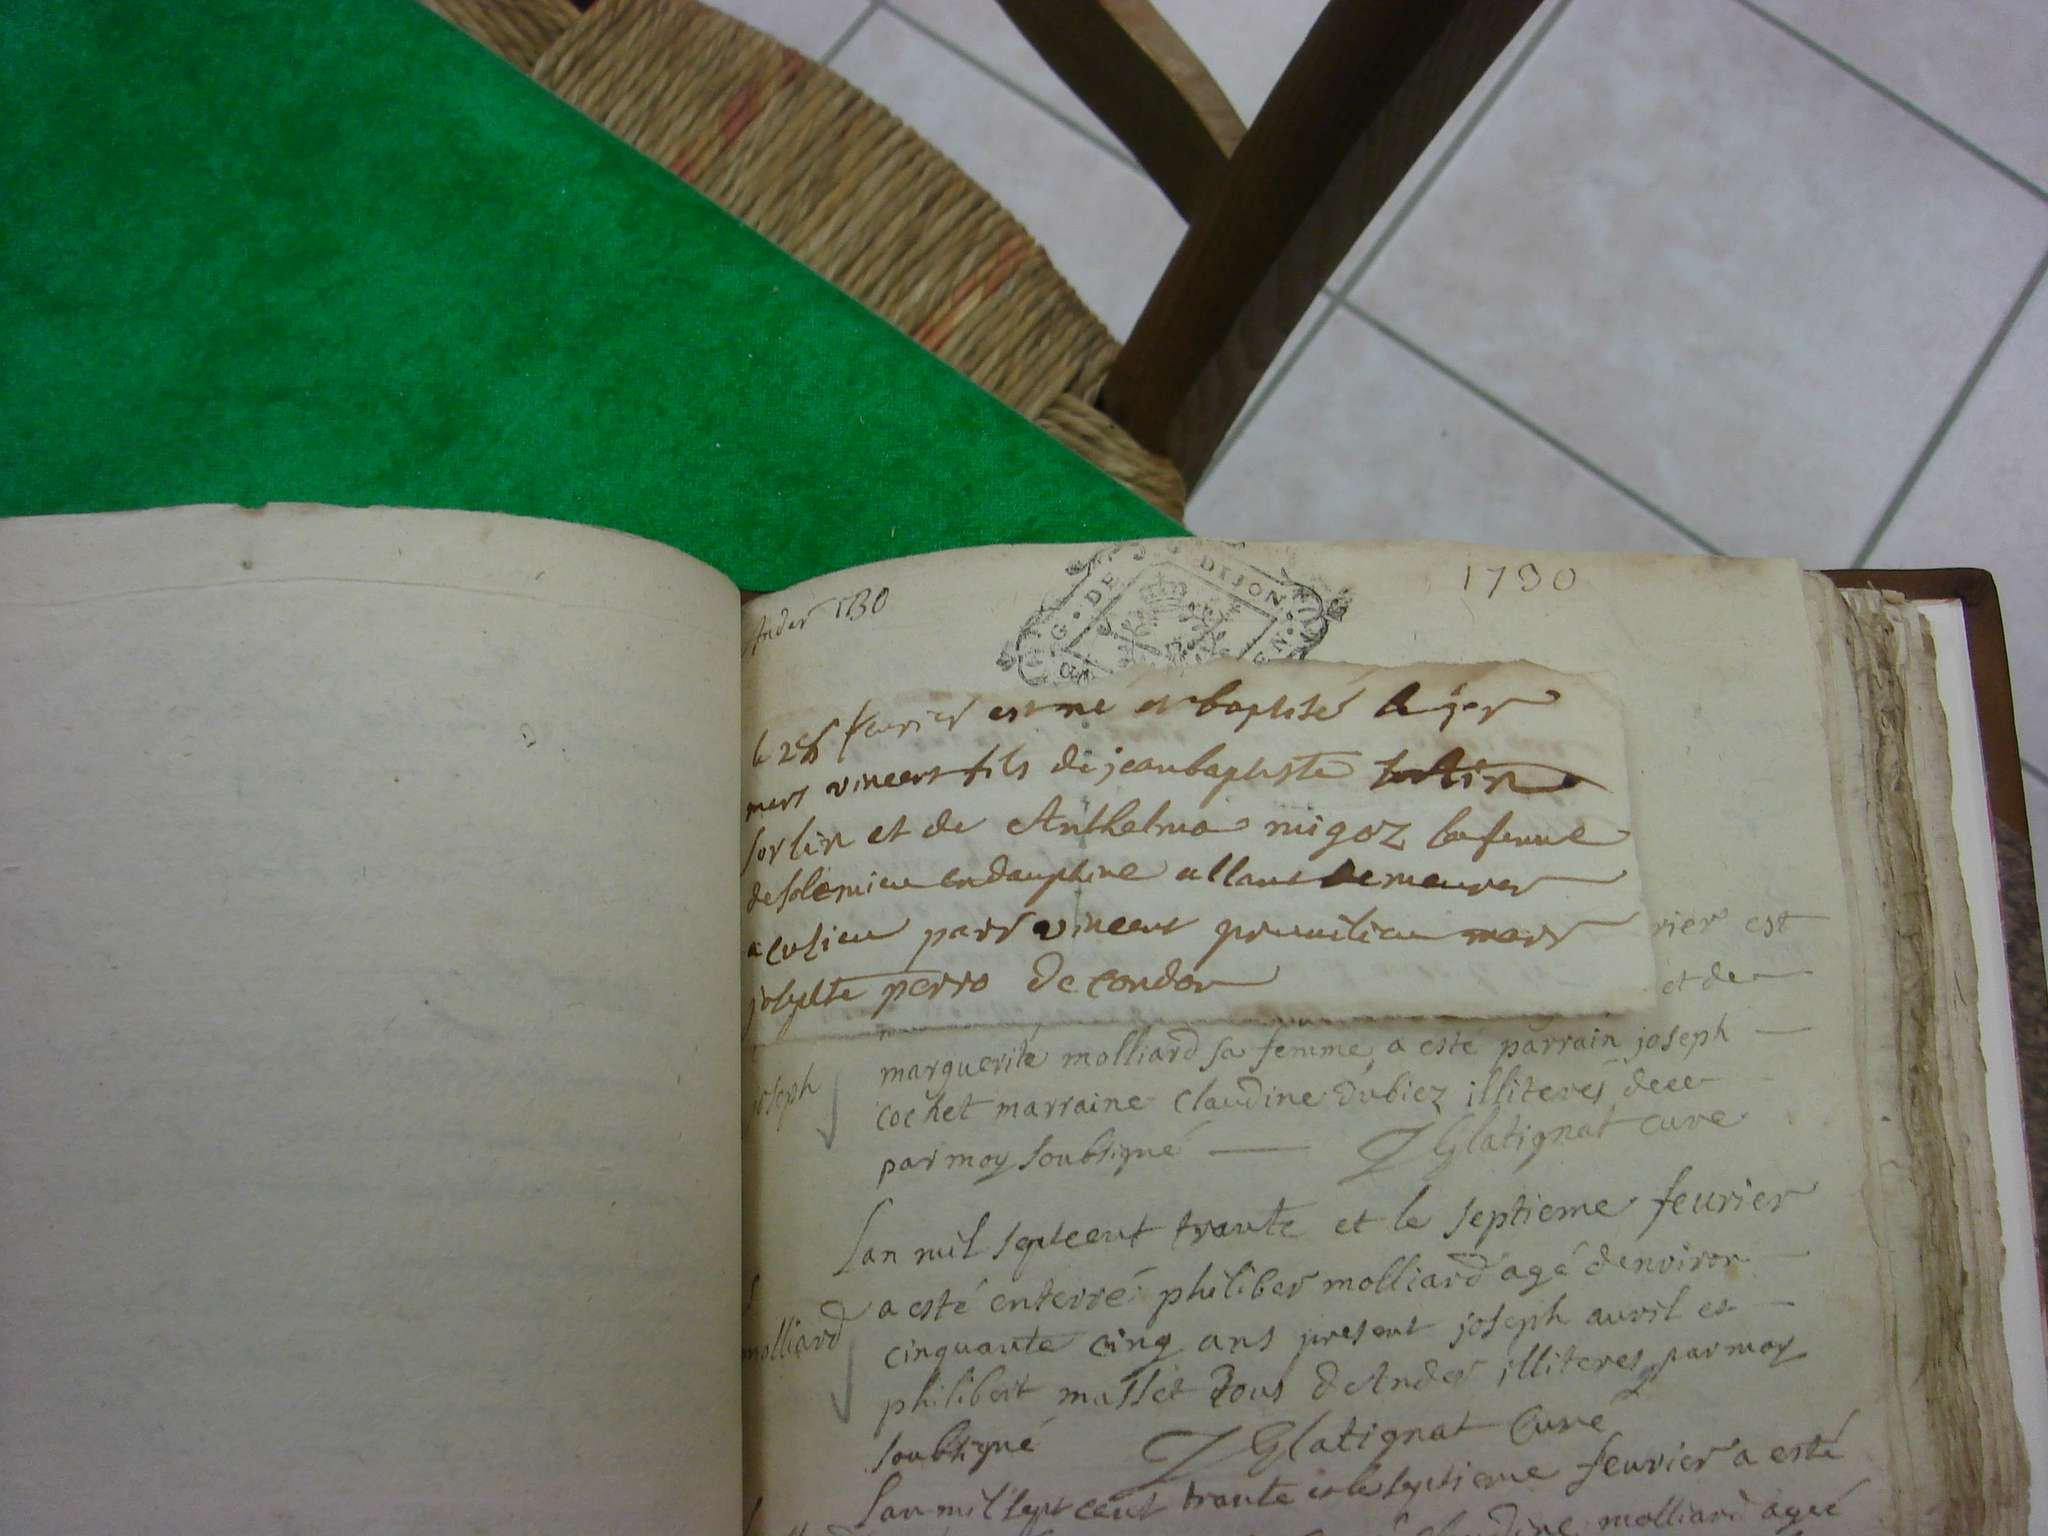 Ander 1730
1730
G. DE DIJON
GEN.
le fevrier est né et baptisé
vincent fils de jean baptiste
sorlin et de Anthelma migoz sa femme
de solemieu en dauphine allant demeurer
a cusieu parr vincent marr
perro de condon
rier est
et de
marguerite molliard sa femme a esté parrain joseph
joseph
cochet marraine claudine dubiez illiteres
par moy soubsigné Glatignat curé
Lan mil septcent trante et le septieme feurier
a esté enterré philiber molliard agé denviron
molliard
cinquante cinq ans present joseph auril et
philibert masset tous dAnder illiteres par moy
soubsigné Glatignat Curé
Lan mil sept cent trante et le septieme feurier a esté
claudine molliard ageé